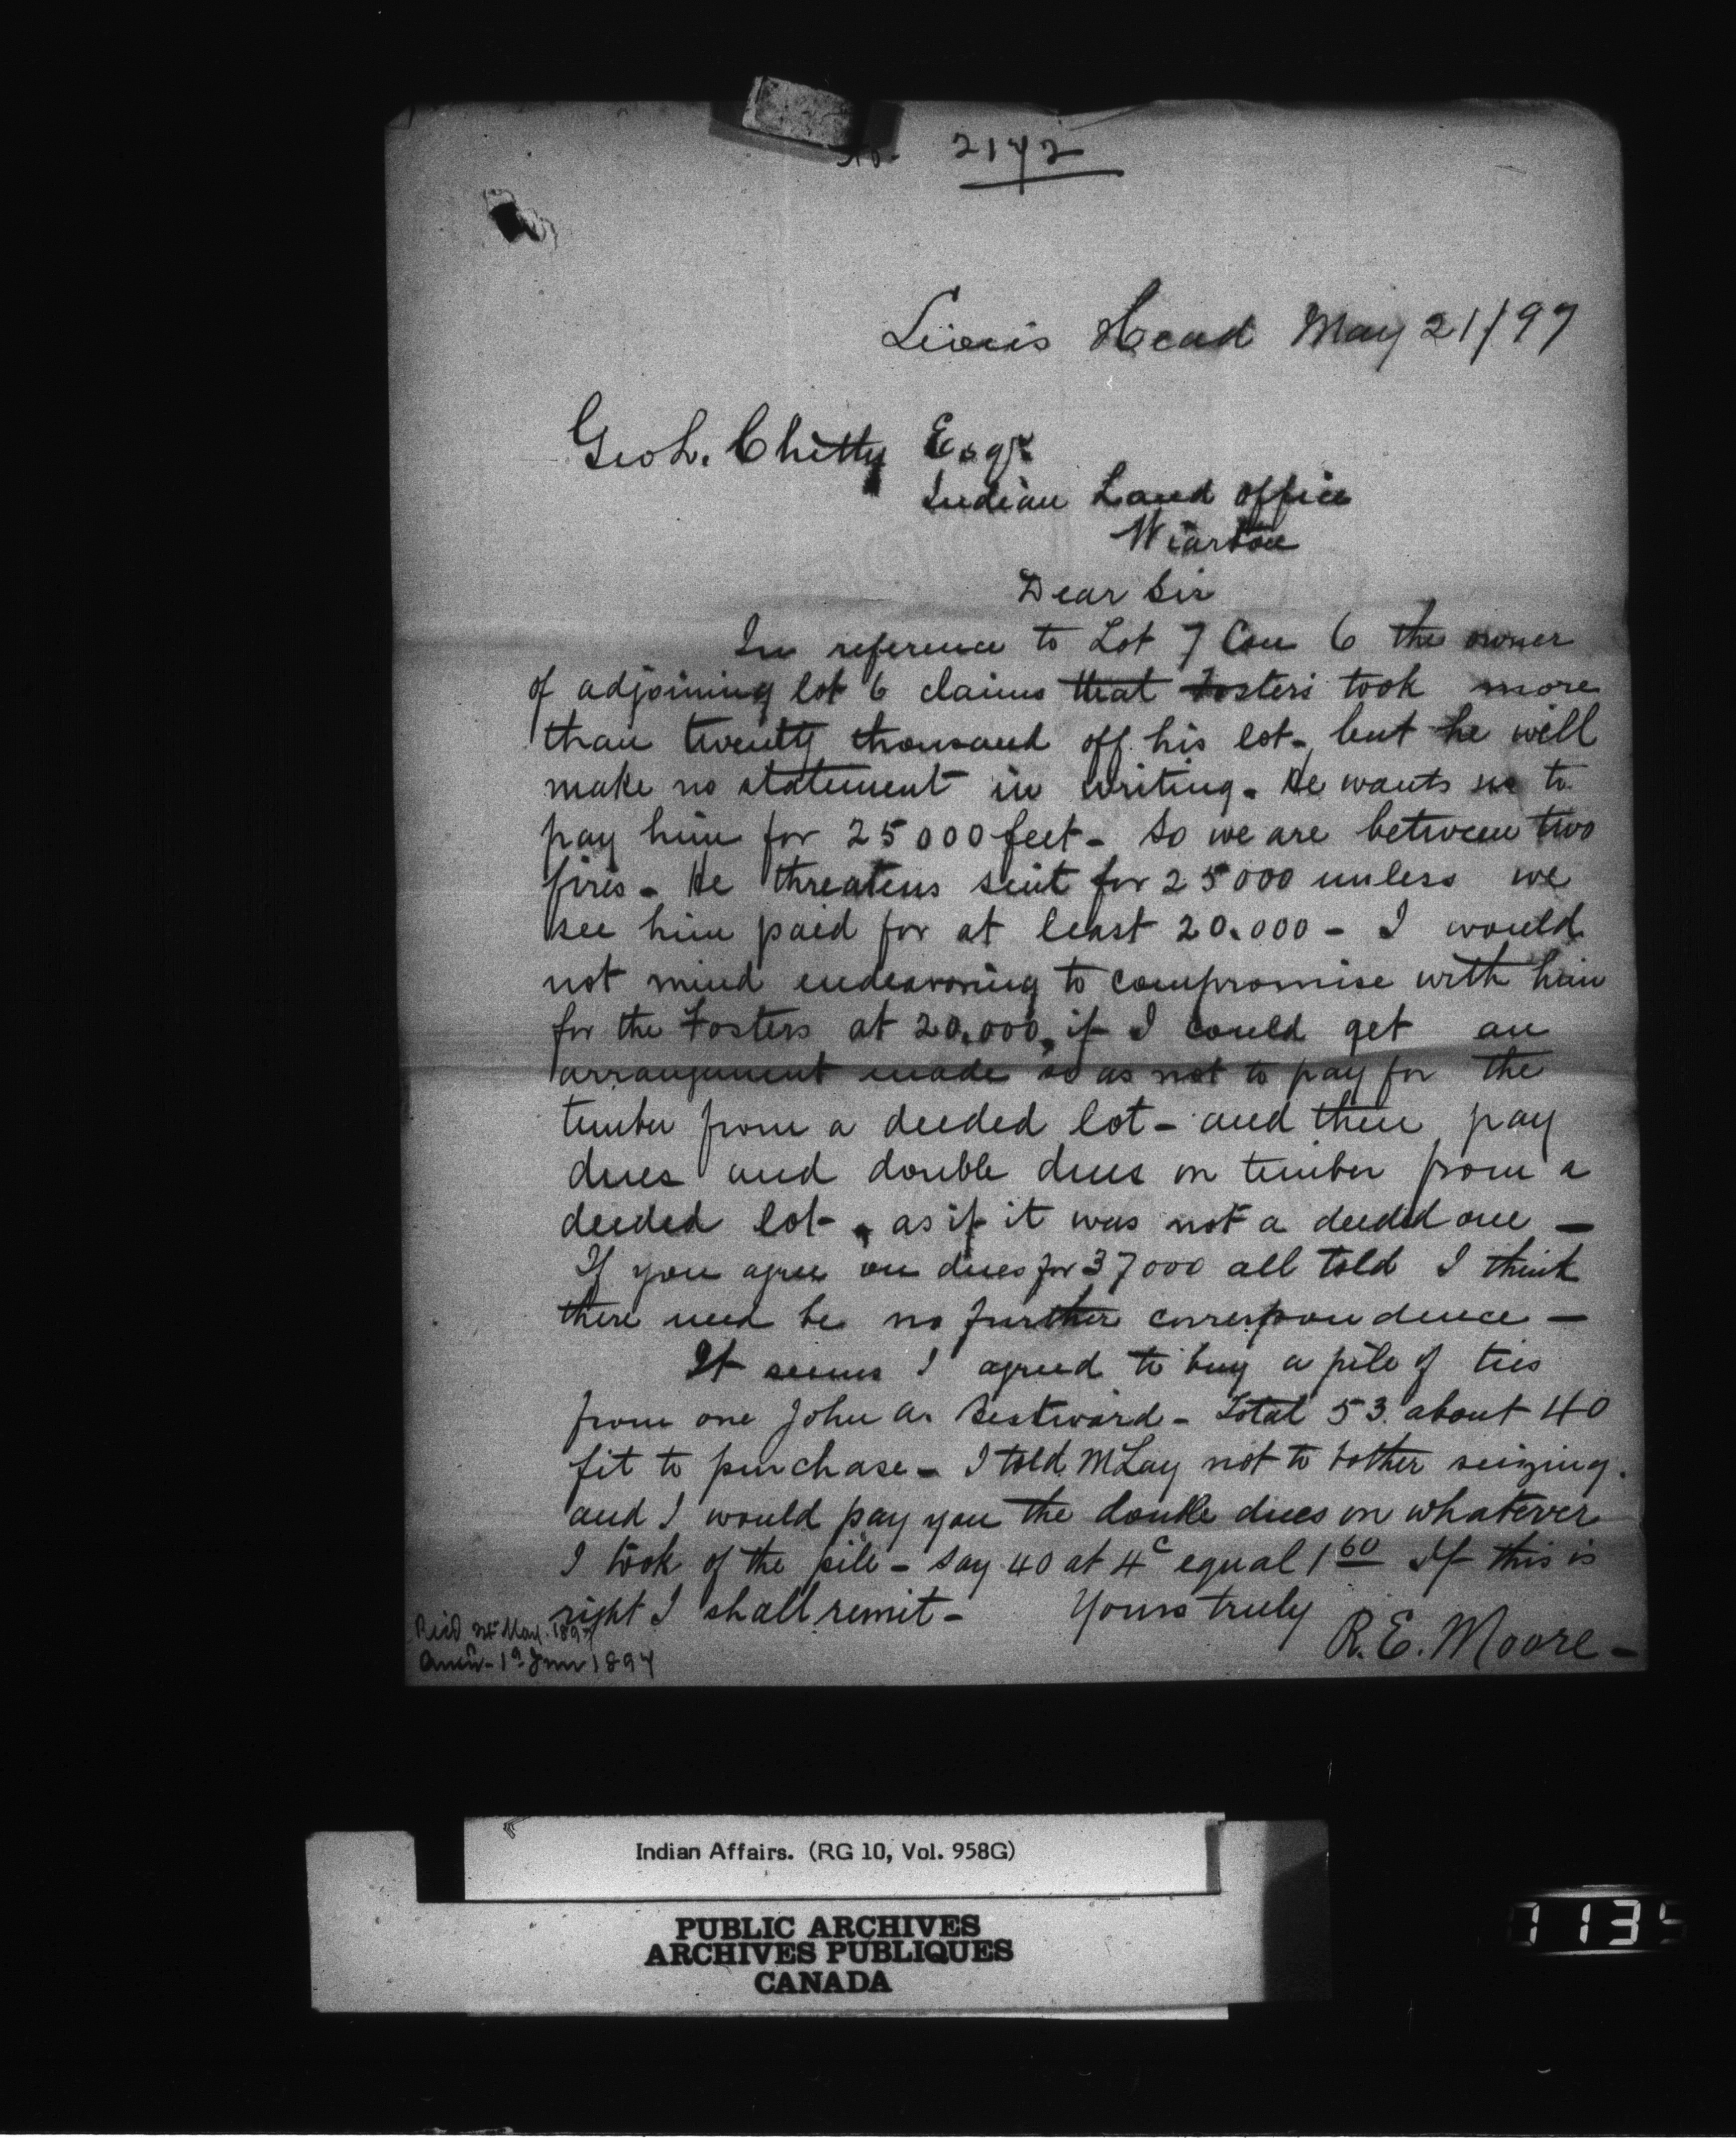 No. 2172
Lion's Head May 21/97
Geo L. Chitty Esqr
Indian Land Office
Wiarton
Dear Sir
In reference to Lot 7 Con 6 the owner
of adjoining lot 6 claims that Fosters took more
than twenty thousand off his lot - but he will
make no statement in writing. He wants us to
pay him for 25000 feet - So we are between two
fires - He threatens suit for 25000 unless we
see him paid for at least 20.000 - I would
not mind endeavoring to compromise with him
for the Fosters at 20.000, if I could get an
arrangement made so as not to pay for the
timber from a deeded lot - and then pay
dues and double dues on timber from a
deeded lot, as if it was not a deeded one -
If you agree on dues for 37000 all told I think
there need be no further correspondence -
It seems I agreed to buy a pile of ties
from one John A. - Total 53. about 40
fit to purchase - I told McLay not to bother seizing.
and I would pay you the double dues on whatever
I took of the pile - say 40 at 4c equal 1 60 If this is
right I shall remit - Yours truly
R.E. Moore -
Recd 24 May. 1897
Ansd - 1st June 1897
Indian Affairs. (RG 10, Vol. 958G)
PUBLIC ARCHIVES
ARCHIVES PUBLIQUES
CANADA
113